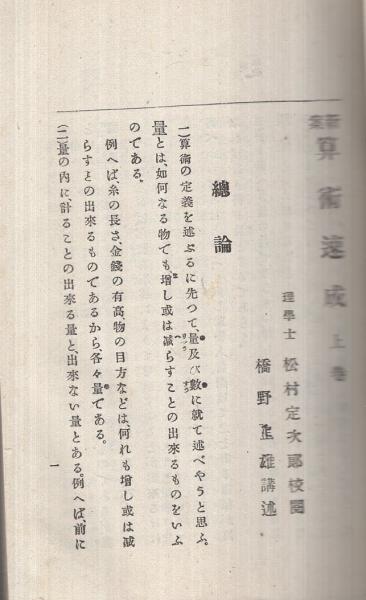 新案
算術速成 上巻
理學士 松村定次郎校閲
橋野正雄講述
總論
(一)算術の定義を述ぶるに先つて、量及び數に就て述べやうと思ふ。
量とは、如何なる物でも、增し或は減らすことの出來るものをいふ
のである。
例へば、糸の長さ、金錢の有高、物の目方などは、何れも增し或は減
らすよの出來るものであるから、各々量である。
(二)量の內に、計ることの出來る量と、出來ない量とある。例へば、前に
一